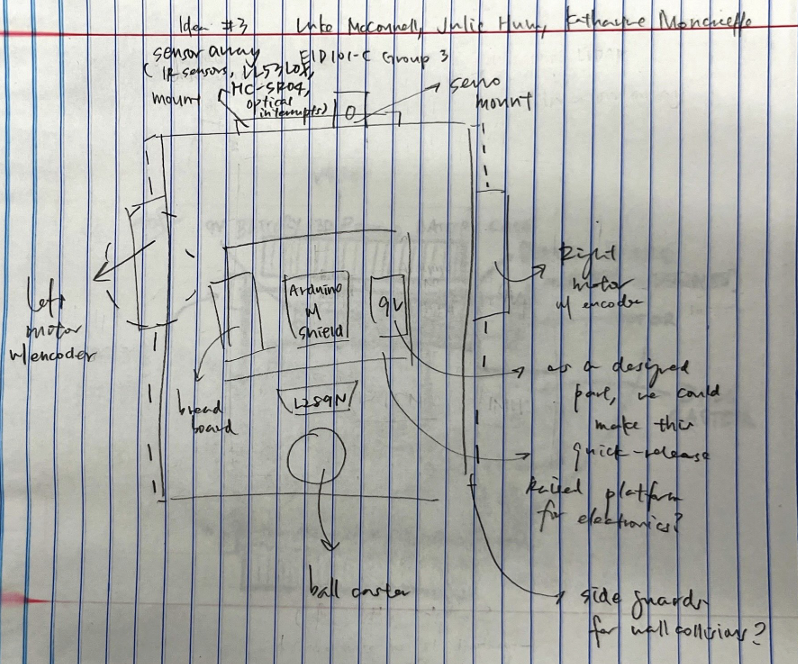 Idea #3
Luke McConnell, Julie Hum, Katharine Moncrieffe
EID101-C Group 3
sensor array
(IR sensors, VL53L0X,
HC-SR04,
optical
interrupts)
mount
servo
mount
left
motor
w/encoder
Arduino
w
shield
9V
Right
motor
w/ encoder
bread
board
L289N
as a designed
part, we could
make this
quick-release
Raised platform
for electronics?
ball caster
side guards
for wall collisions?